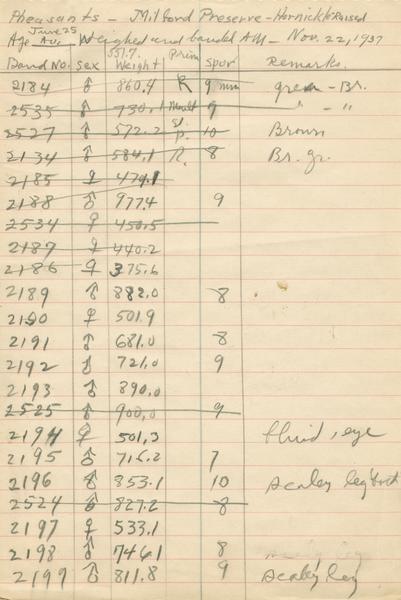 Pheasants - Milford Preserve - Hornick to Raised
June 25
Age Av. Weighed and banded AM - Nov. 22, 1937
Band No. Sex Weight Prim Spur Remarks.
2184 ♂ 860.4 R 9 mm green - Br.
2535 ♂ 730.1 Moult 9 " - "
2527 ♂ 572.2 p. 10 Brown
2134 ♂ 584.1 R. 8 Br. gr.
2185 ♀ 479.1
2188 ♂ 977.4 9
2534 ♀ 450.5
2187 ♀ 440.2
2186 ♀ 375.6
2189 ♂ 882.0 8
2190 ♀ 501.9
2191 ♂ 681.0 8
2192 ♂ 721.0 9
2193 ♂ 890.0
2525 ♂ 900.0 9
2194 ♀ 501.3 fluid, eye
2195 ♂ 716.2 7
2196 ♂ 853.1 10 Scaley leg
2524 ♂ 827.2 8
2197 ♀ 533.1
2198 ♂ 746.1 8 scaly leg
2199 ♂ 811.8 9 Scaley leg